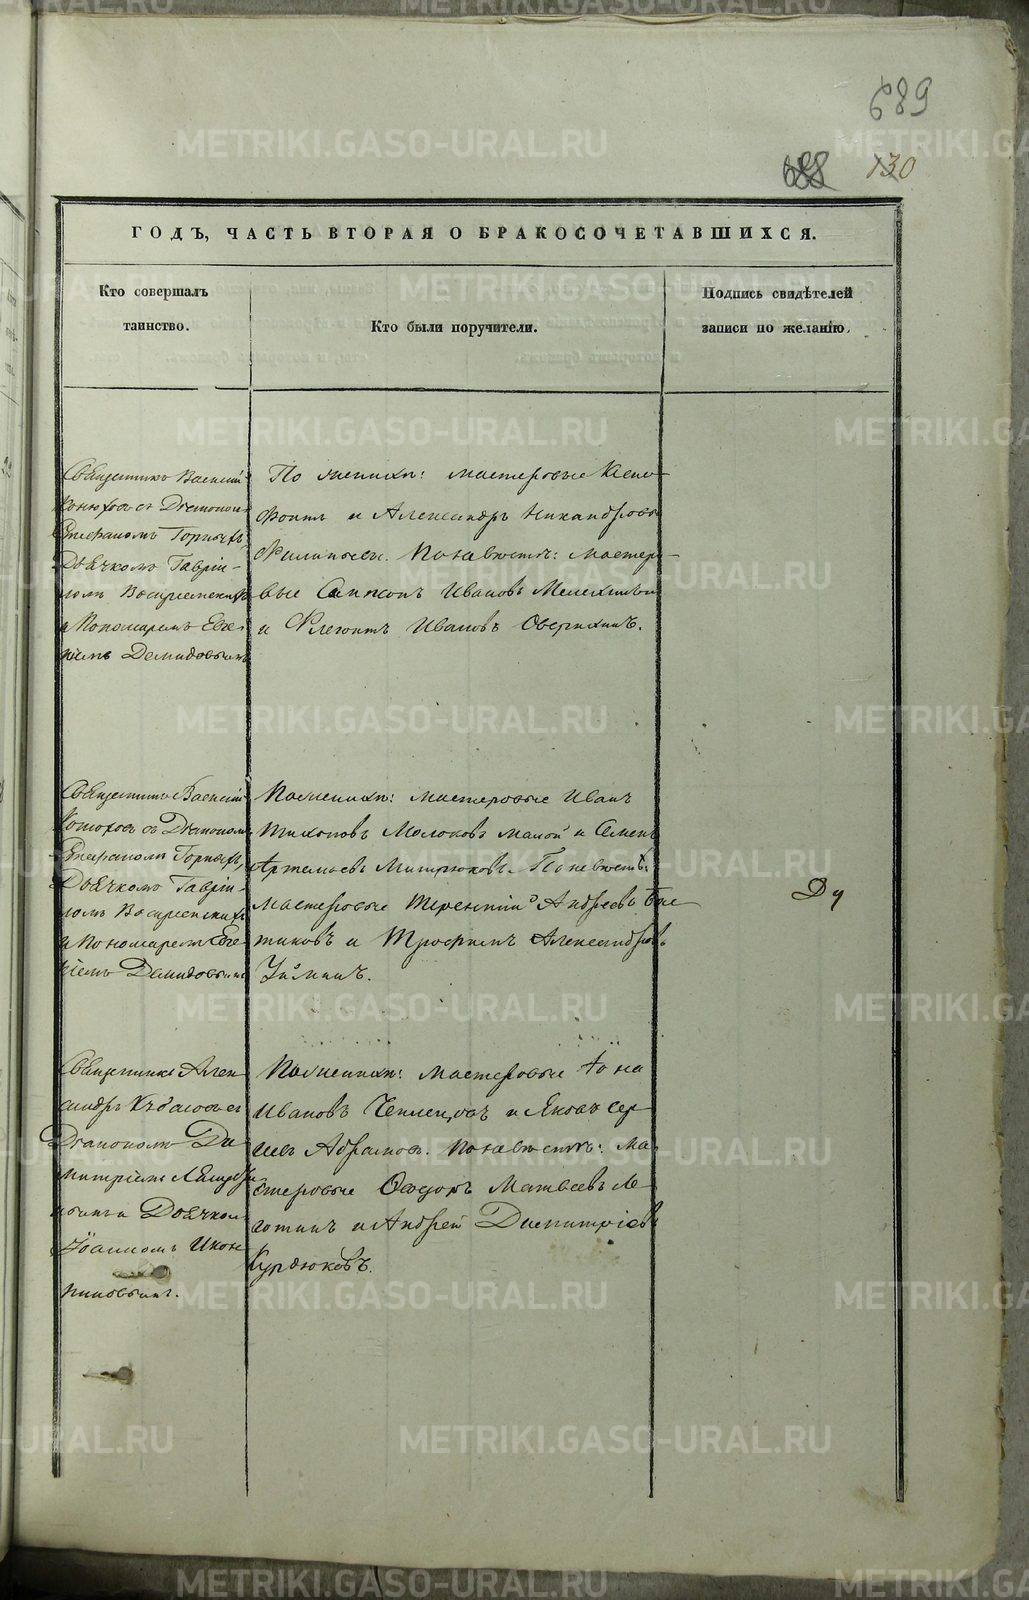 689
688 130
ГОДЪ, ЧАСТЬ ВТОРАЯ О БРАКОСОЧЕТАВШИХСЯ.
Кто совершалъ
таинство.
Кто были поручители.
Подпись свидѣтелей
записи по желанію.
Священникъ Василий
съ Диакономъ
Стефаномъ Горныхъ,
Дьячкомъ Гаврiи-
ломъ Воскресенскимъ
и Пономаремъ Евге-
ніемъ Демидовымъ
По женихѣ: мастеровые Ксено-
фонтъ и Александръ Никандровы
Филипьевы. По невѣстѣ: мастеро-
вые Сампсонъ Ивановъ
и Флегонтъ Ивановъ Оверихинъ.
Священникъ Василий
съ Диакономъ
Стефаномъ Горныхъ,
Дьячкомъ Гаврiи-
ломъ Воскресенскимъ
и Пономаремъ Евге-
ніемъ Демидовымъ
По женихѣ: мастеровые Иванъ
Тихоновъ Молоковъ малой и Семенъ
Артемьевъ Митрюковъ. По невѣстѣ:
мастеровые Терентий Андреевъ
и Трофимъ Александровъ
Священникъ Алек-
сандръ съ
Диакономъ Ди-
митріемъ
и Дьячкомъ
Іоанномъ Икон-
никовымъ.
По женихѣ: мастеровые Іона
Ивановъ и Яковъ Сер-
геевъ Абрамовъ. По невѣстѣ: ма-
стеровые Ѳедоръ Матвеевъ Ле-
готинъ и Андрей Димитріевъ
Курдюковъ.
METRIKI.GASO-URAL.RU